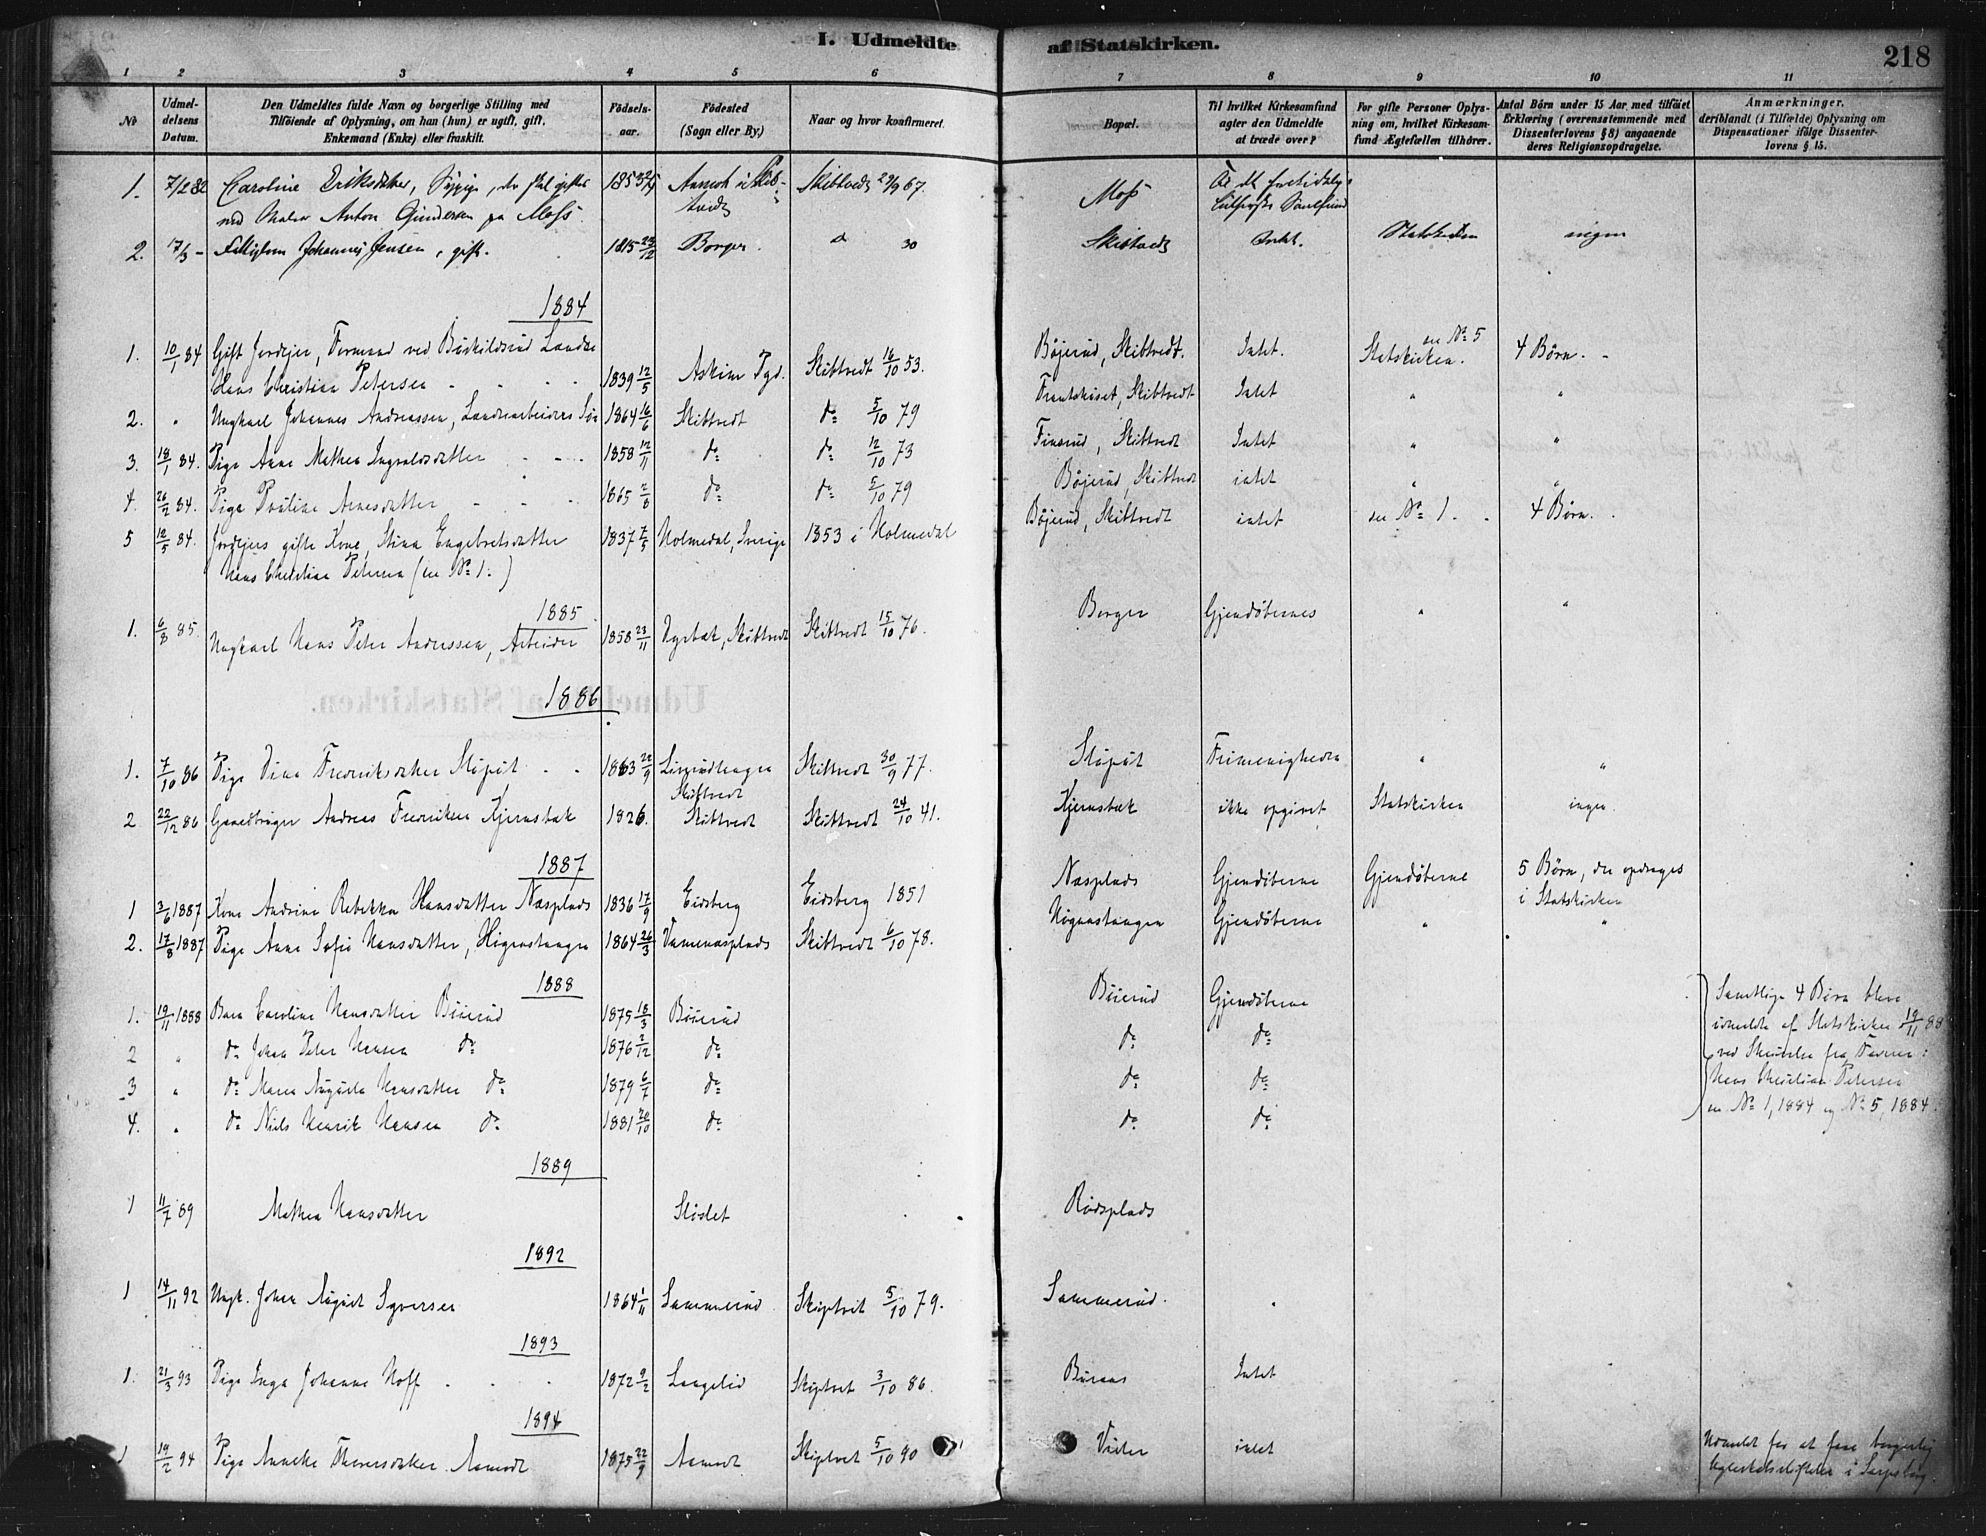 I. Udmeldte af Statskirken.
218
1 2 3 4 5 6 7 8 9 10 11
No
Udmeldelsens Datum.
Den Udmeldtes fulde Navn og borgerlige Stilling med
Tilföiende af Oplysning, om han (hun) er ugift, gift,
Enkemand (Enke) eller fraskilt.
Födselsaar.
Födested
(Sogn eller By.)
Naar og hvor konfirmeret.
Bopæl.
Til hvilket Kirkesamfund
agter den Udmeldte
at træde over?
For gifte Personer Oplysning om, hvilket Kirkesamfund Ægtefællen tilhörer.
Antal Börn under 15 Aar med tilföiet
Erklæring (overensstemmende med
Dissenterlovens § 8) angaaende
deres Religionsopdragelse.
Anmærkninger,
deriblandt (i Tilfælde) Oplysning om
Dispensationer ifölge Dissenterlovens § 15.
1. 7/2 82 Caroline Eriksdatter, der skal giftes 1853 Skibtvedt 67. Moss
med Maler Anton Gundersen paa Moss.
2. 17/3 - Johannes Jensen, gift. 1815 23/12 Borger 30 Skibtvedt Intet. Statskirken ingen
1884
1. 10/1 84 Gift Jordejer, Formand ved Landse Bøjerud, Skibtvedt. Intet. se No 5 Statskirken. 4 Børn. -
Hans Christian Petersen - - - 1839 12/5 Askim Pgd. Skibtvedt 16/10 53.
2. " Ungkarl Johannes Andreassen, Søn 1864 16/6 Skibtvedt do 5/10 79 Skibtvedt Intet " "
3. 18/1 84. Pige Anne Mathea Ingvaldsdatter - - - 1858 12/11 do do 12/10 73 Finsrud, Skibtvedt Intet " "
4. 26/2 84. Pige Pauline Arnesdatter - - - 1865 2/8 do do 5/10 79 Bøjerud, Skibtvedt intet " "
5 12/5 84. Jordejers gifte Kone, Stina Engebretsdatter 1837 7/5 Holmedal, Sverige 1853 i Holmedal Bøjerud, Skibtvedt intet se No 1. - 4 Børn.
Hans Christian Petersen (se No 1.)
1885
1. 6/8 85. Ungkarl Hans Peter Andreassen, Arbeider 1858 23/11 Skibtvedt Skibtvedt 15/10 76. Borger Gjendöbernes " "
1886
1. 7/10 86 Pige Dina Fredriksdatter Stöpet - - 1863 22/9 Skibtvedt Skibtvedt 30/9 77. Stöpet Frimenigheden " "
2 22/12 86 Gaardbruger Andreas Fredriksen Kjernsbæk 1826. Skibtvedt Skibtvedt 24/10 41. Kjernsbæk ikke opgivet Statskirken ingen.
1887
1 3/6 1887 Kone Andrine Rebekka Hansdatter Næsplads 1836 17/9 Eidsberg Eidsberg 1851 Næsplads Gjendöberne Gjendöberne 5 Børn, der opdrages
i Statskirken
2. 17/8 1887 Pige Anne Sofie Hansdatter, 1864 26/3 Skibtvedt 6/10 78. Gjendöberne " "
1888
1. 19/11 1888 Barn Caroline Hansdatter Böierud 1875 18/3 Böierud Böierud Gjendöberne
2 " do Johan Peter Hansen do 1876 2/12 do do do
3 " do Maren Augusta Hansdatter do 1879 6/7 do do do
4. " do Niels Henrik Hansen do 1881 20/10 do do do
Samtlige 4 Børn bleve
udmeldte af Statskirken 19/11 88
ved Skrivelse fra Faderen:
Hans Christian Petersen
se No 1, 1884 og No 5, 1884.
1889
1 11/7 89 Mathea Hansdatter Slöslet Rödsplads
1892
1 14/11 92 Ungk. Johan August Syversen 1864 1/11 Sammerud Skiptvet 5/10 79. Sammerud. "
1893
1. 21/3 93 Pige Inga Johanne Hoff - - - 1872 9/2 Langelid Skiptvet 3/10 86. Intet
1894
1 19/2 94 Pige Annette Thoresdatter Aamodt 1875 22/9 Aamodt Skiptvet 5/10 90 intet Udmeldt for at faa borgerlig
i Sarpsborg.